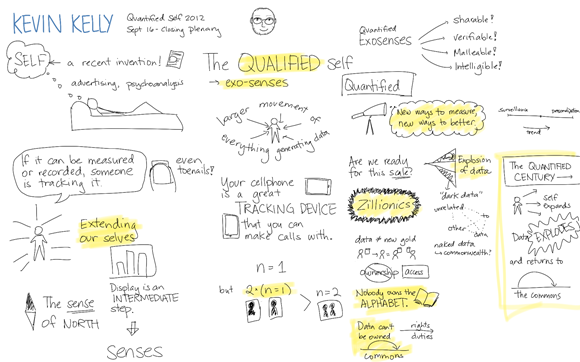 KEVIN KELLY
Quantified Self 2012
Sept 16 - closing plenary
SELF
← a recent invention!
advertising, psychoanalysis
If it can be measured
or recorded, someone
is tracking it.
even
toenails!
Extending
our selves
Display is an
INTERMEDIATE
step.
The sense
of NORTH
SENSES
The QUALIFIED self
→ exo-senses
larger movement
of
everything generating data
Your cellphone
is a great
TRACKING DEVICE
that you can
make calls with.
n = 1
but 2·(n=1) > n=2
Quantified
Exosenses
sharable?
verifiable?
Malleable?
Intelligible?
Quantified
New ways to measure,
new ways to better
surveillance
trend
Are we ready
for this scale?
Explosion
of data
Zillionics
"dark data"
unrelated
to
other
data
data ≠ new gold
naked data
→ commonwealth?
ownership access
Nobody owns the
ALPHABET.
Data can't
be owned
commons
rights
duties
The QUANTIFIED
CENTURY →
self
expands
Data EXPLODES
and returns to
the commons